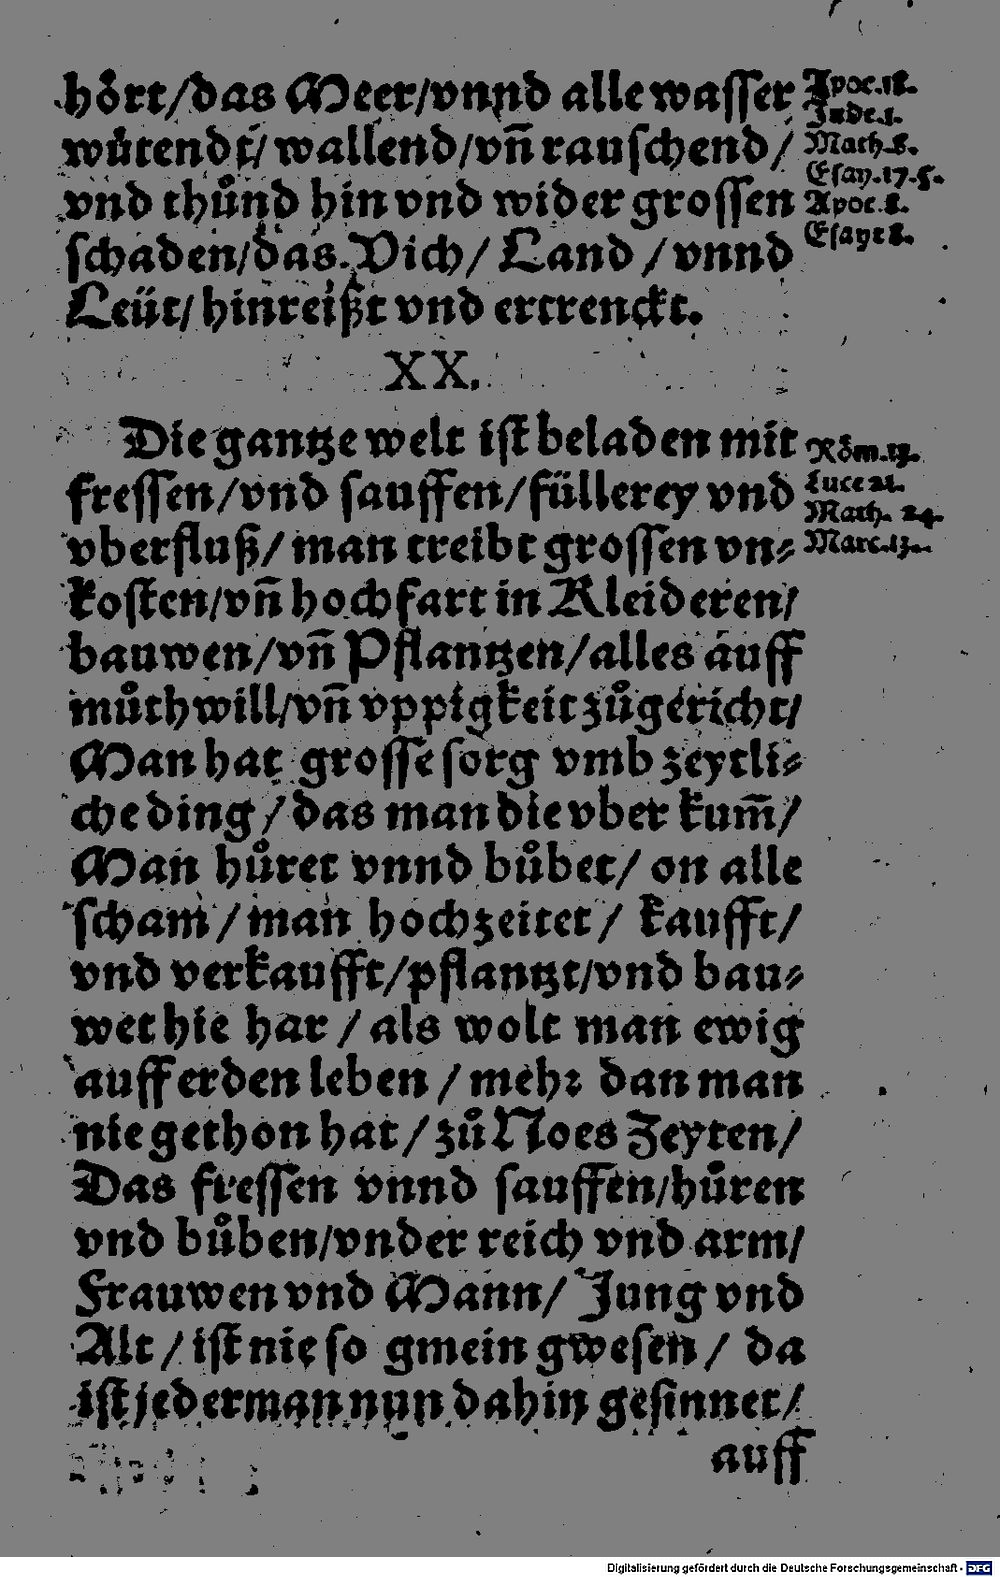 hoͤrt/das Meer/vnnd alle wasser
wuͤtendt/wallend/vñ rauschend/
vnd thuͦnd hin vnd wider grossen
schaden/das Vich/ Land / vnnd
Leüt/ hinreißt vnd ertrenckt.
Apoc.18.
Jude.1.
Math.8.
Esay.17.5.
Apoc.8.
XX.
Die gantze welt ist beladen mit
fressen/vnd sauffen/füllerey vnd
vberfluß/ man treibt grossen vn⸗
kosten/vñ hochfart in Kleideren/
bauwen/vñ Pflantzen/alles auff
muͦthwill/vñ vppigkeit zuͦgericht/
Man hat grosse sorg vmb zeytli⸗
che ding / das man die vber kum̃/
Man huͦret vnnd buͦbet/ on alle
scham / man hochzeitet / kaufft/
vnd verkaufft/pflantzt/vnd bau⸗
wet hie har / als wolt man ewig
auff erden leben / mehr dan man
nie gethon hat / zuͦ Noes Zeyten/
Das fressen vnnd sauffen/huͦren
vnd buͦben/vnder reich vnd arm/
Frauwen vnd Mann/ Jung vnd
Alt / ist nie so gmein gwesen / da
ist jederman nun dahin gesinnet/
auff
Roͤm.13.
Luce 21.
Math. 24.
Marc.13.
Digitalisierung gefördert durch die Deutsche Forschungsgemeinschaft - DFG